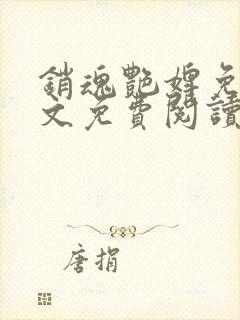 銷魂艷婢免
文免費閱讀
唐捐